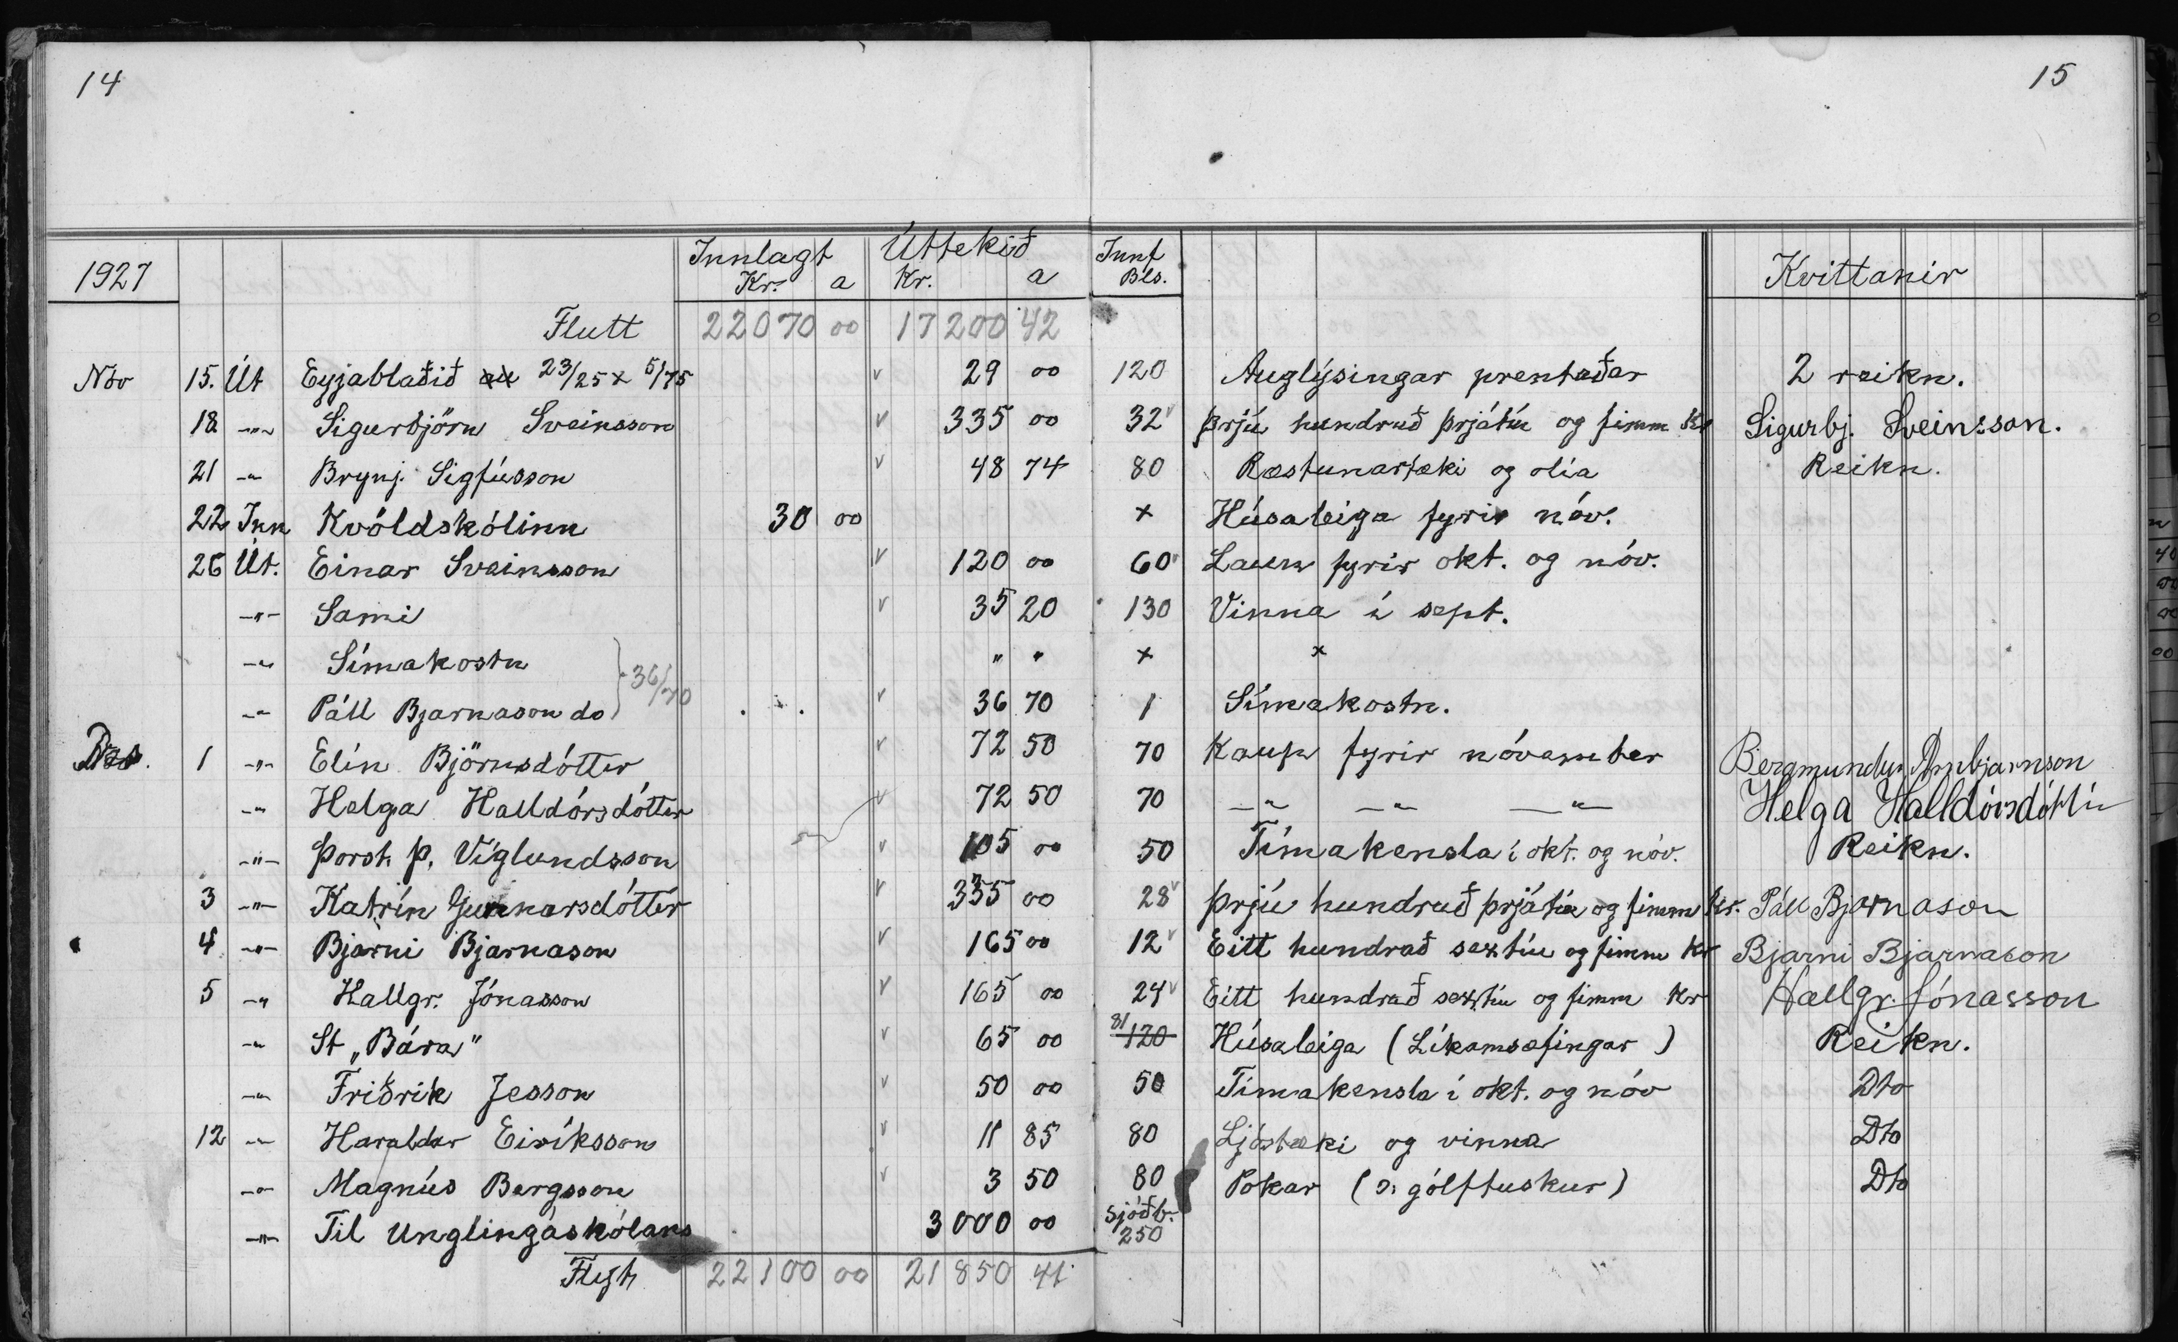 14
15
1927 Innlagt Kr. a Úttekið Kr. a Innf Bls. Kvittanir
Flutt 22070 00 17200 42
Nov 15. Út Eyjablaðið 23/25 + 5/75 v 29 00 120 Auglýsingar prentaðar 2 reikn.
18 -"- Sigurbjörn Sveinsson v 335 00 32 v Þrjú hundruð þrjátíu og fimm Kr Sigurbj. Sveinsson.
21 -"- Brynj. Sigfússon v 48 74 80 Ræstunartæki og olía Reikn.
22 Inn Kvöldskólinn 30 00 + Húsaleiga fyrir nóv.
26 Út. Einar Sveinsson v 120 00 60 v Laun fyrir okt. og nóv.
-"- Sami v 35 20 130 Vinna í sept.
-"- Símakostn } 36/70 " " + +
-"- Páll Bjarnason do v 36 70 1 Símakostn.
Des. 1 -"- Elín Björnsdóttir v 72 50 70 Kaup fyrir nóvember Bergmundur Arnbjarnson
-"- Helga Halldórsdóttir v 72 50 70 -"- -"- -"- Helga Halldórsdóttir
-"- Þorst. Þ. Víglundsson v 105 00 50 Tímakensla í okt. og nóv. Reikn.
3 -"- Katrín Gunnarsdóttir v 335 00 28 v Þrjú hundruð þrjátíu og fimm kr. Páll Bjarnason
4 -"- Bjarni Bjarnason v 165 00 12 v Eitt hundrað sextíu og fimm Kr Bjarni Bjarnason
5 -"- Hallgr. Jónasson v 165 00 24 v Eitt hundrað sextíu og fimm Kr Hallgr. Jónasson
-"- St „Bára" v 65 00 81 120 Húsaleiga (Líkamsæfingar) Reikn.
-"- Friðrik Jesson v 50 00 50 Tímakensla í okt. og nóv Dto
12 -"- Haraldur Eiríksson v 11 85 80 Ljóstæki og vinna Dto
-"- Magnús Bergsson v 3 50 80 Pokar (ɔ: gólftuskur) Dto
-"- Til Unglingaskólans 3000 00 Sjóðb. 250
Flyt 22100 00 21850 41